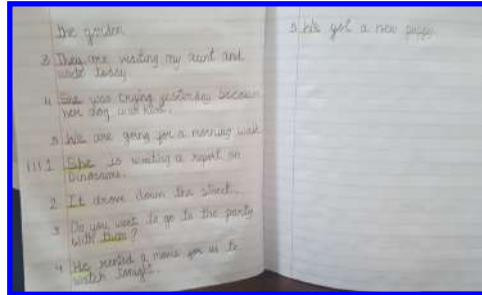 the garden
3 They are visiting my aunt and
uncle today
4 She was crying yesterday because
her dog was
5 We are going for a morning walk
III.1 She is writing a report on
Dinosaurs.
2 It drove down the street.
3 Do you want to go to the party
with them?
4 He rented a movie for us to
watch tonight.
5 We got a new puppy